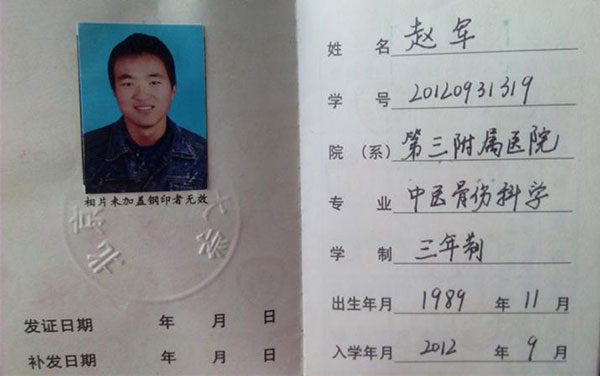 相片未加盖钢印者无效
发证日期 年 月 日
补发日期 年 月 日
姓 名 赵军
学 号 20120931319
院 (系) 第三附属医院
专 业 中医骨伤科学
学 制 三年制
出生年月 1989 年 11 月
入学年月 2012 年 9 月